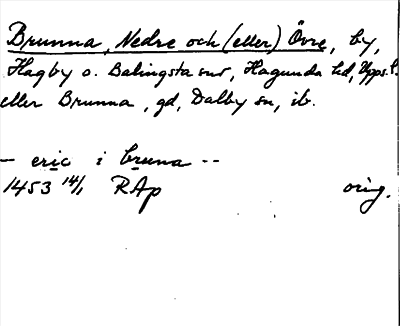 Brunna, Nedre och (eller) Övre, by,
Hagby o. Balingsta snr, Hagunda hd, Upps. l.
eller Brunna, gd, Dalby sn, ib.
— eric i bruna --
1453 14/1 RAp orig.